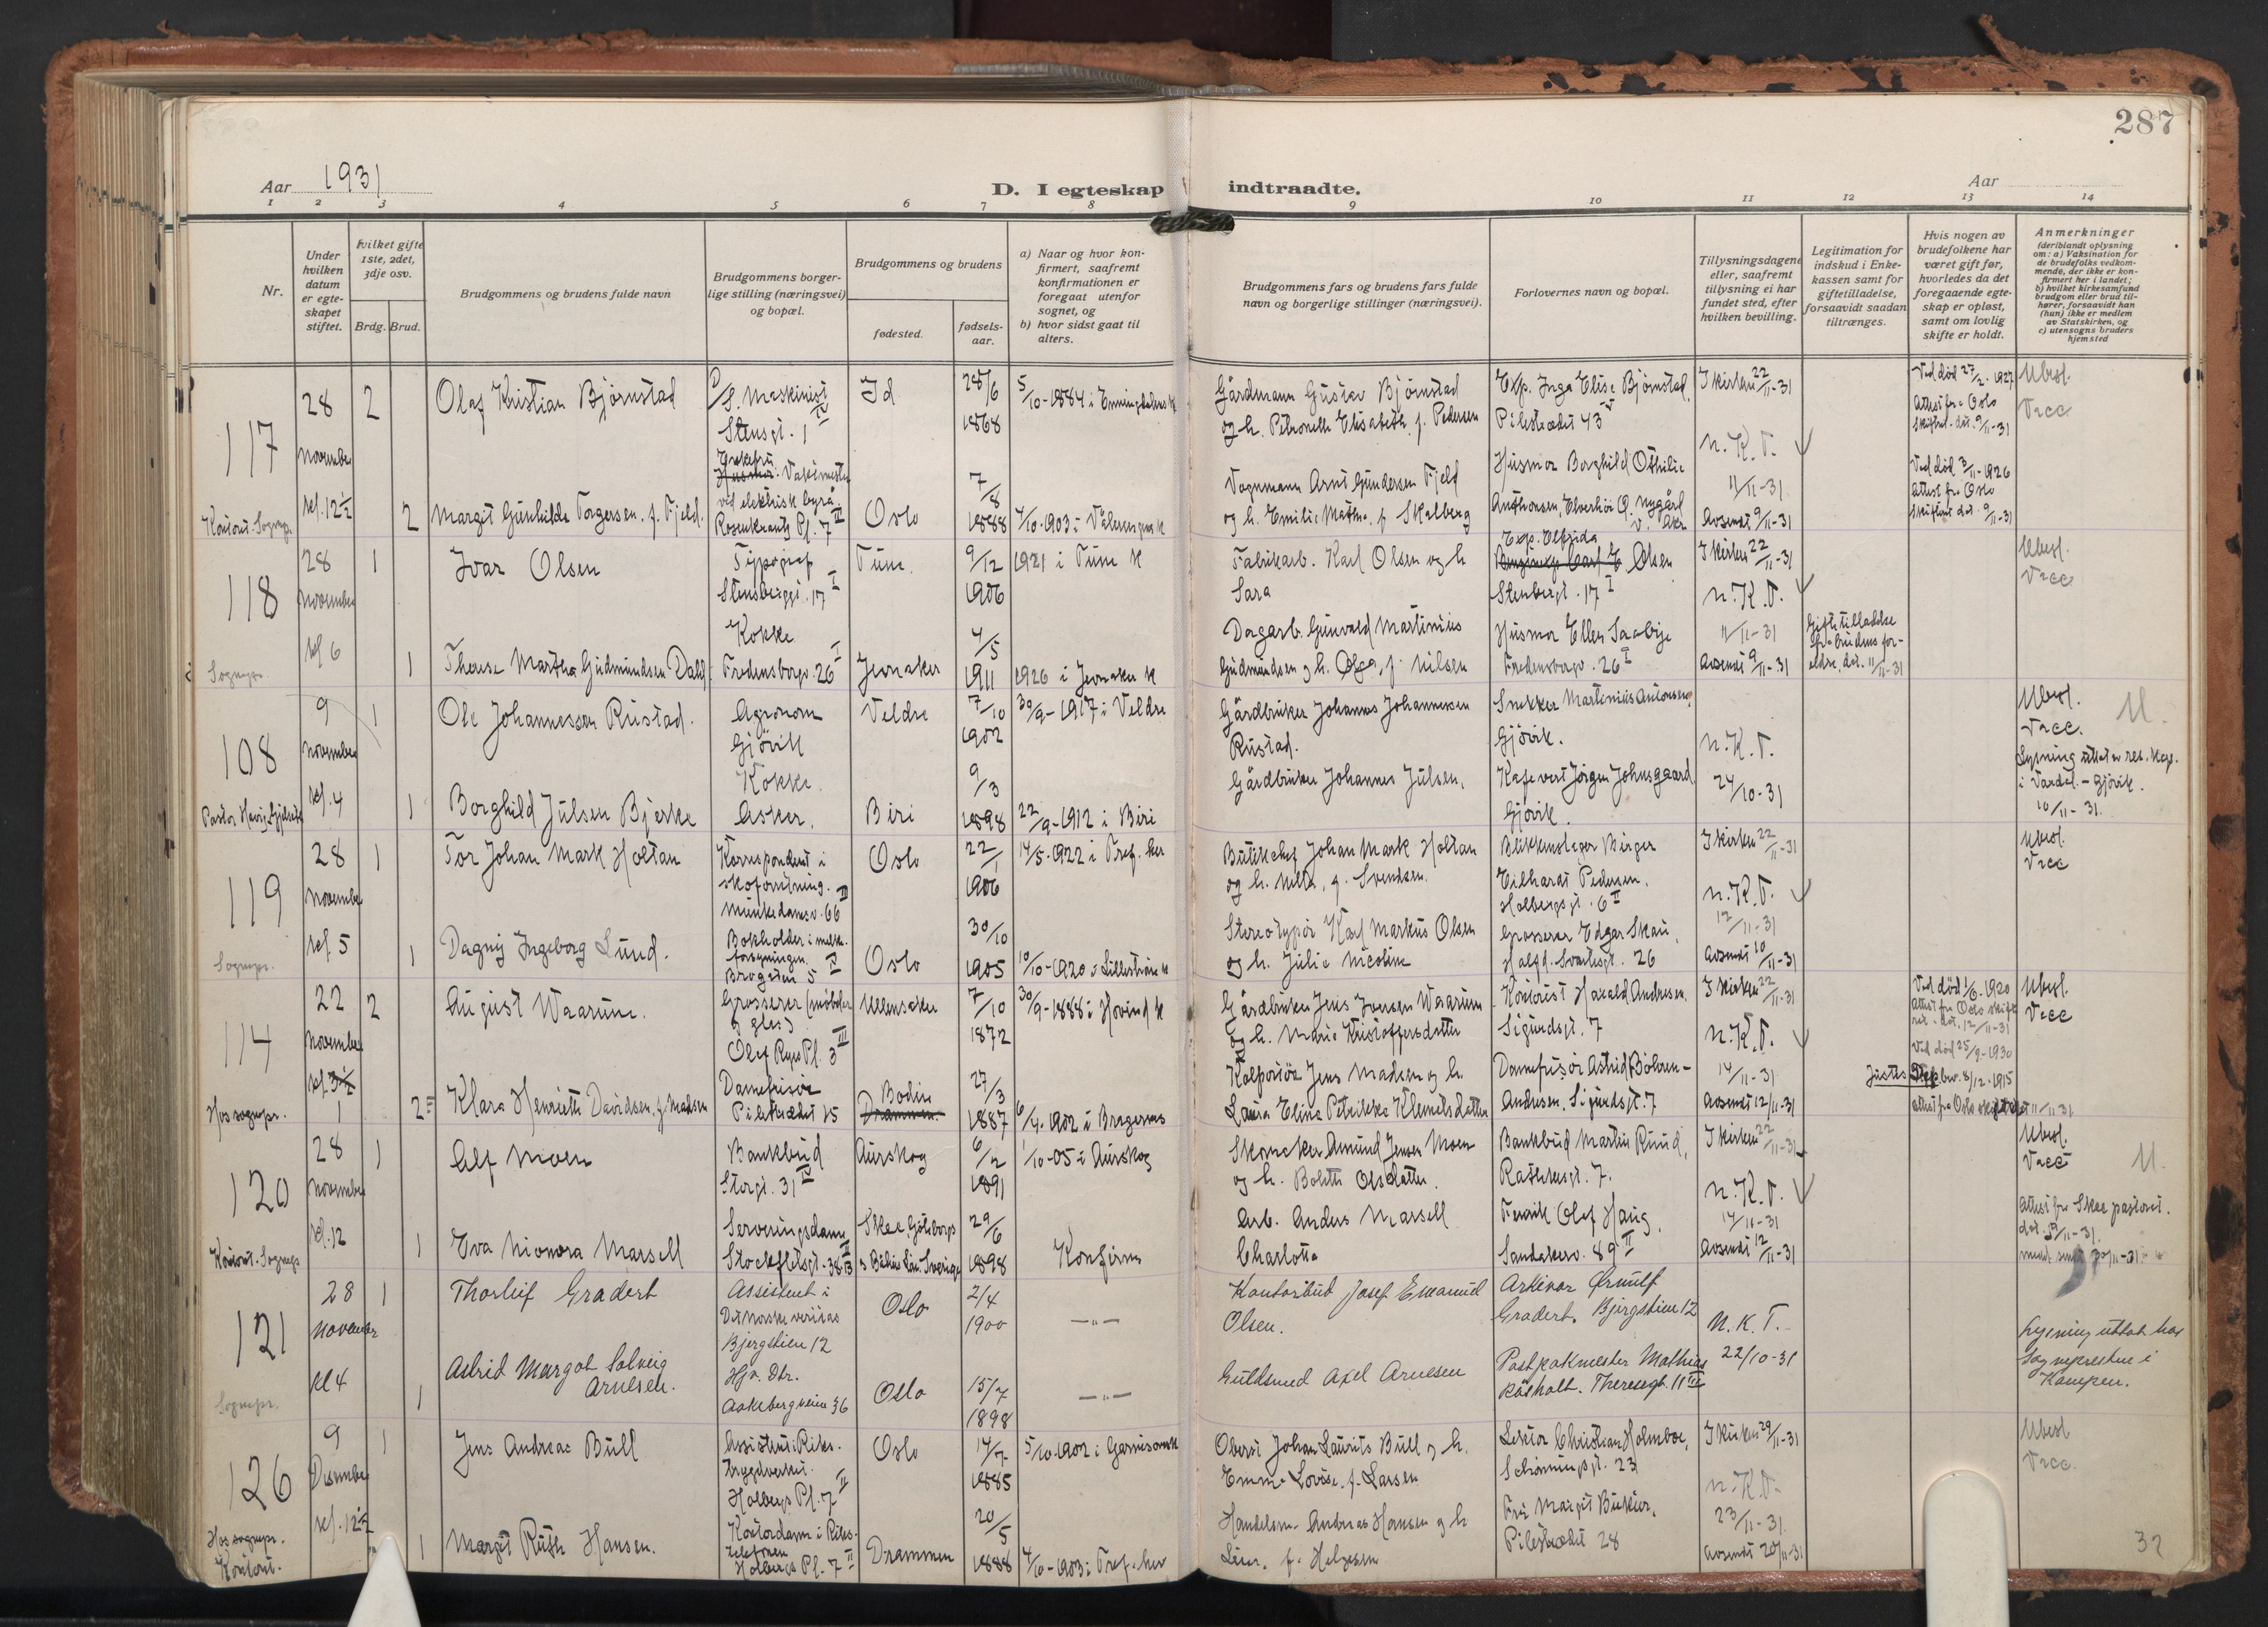 287
Aar 1931
D. I egteskap indtraadte.
Aar
1 2 3 4 5 6 7 8 9 10 11 12 13 14
Nr.
Under hvilken datum er egteskapet stiftet.
hvilket gifte 1ste, 2det, 3dje osv.
Brdg. Brud.
Brudgommens og brudens fulde navn
Brudgommens borgerlige stilling (næringsvei) og bopæl.
Brudgommens og brudens
fødested.
fødselsaar.
a) Naar og hvor konfirmert, saafremt konfirmationen er foregaat utenfor sognet, og
b) hvor sidst gaat til alters.
Brudgommens fars og brudens fars fulde navn og borgerlige stillinger (næringsvei).
Forlovernes navn og bopæl.
Tillysningsdagene eller, saafremt tillysning ei har fundet sted, efter hvilken bevilling.
Legitimation for indskud i Enkekassen samt for giftetilladelse, forsaavidt saadan tiltrænges.
Hvis nogen av brudefolkene har været gift før, hvorledes da det foregaaende egteskap er opløst, samt om lovlig skifte er holdt.
Anmerkninger (deriblandt oplysning om: a) Vaksination for de brudefolks vedkommende, der ikke er konfirmert her i landet; b) hvilket kirkesamfund brudgom eller brud tilhører, forsaavidt han (hun) ikke er medlem av Statskirken, og c) utensogns bruders hjemsted
117
28 november kl. 12½
2
Olaf Kristian Bjørnstad
D/S. Maskinist
Stensgt. 1 IV
Id
28/6 1868
5/10-1884 i Enningdalens k
Gårdmann Gustav Bjørnstad
og h. Petronelle Elisabeth f. Pedersen
Exp. Inga Elise Bjørnstad,
Pilestrædet 43 V
I kirken 22/11-31
n. K. T.
Ved død 27/2-1927
Attest fra Oslo
skifteret. dat. 9/11-31
Ubesl.
Vacc
Kontoret. Sognepr.
2
Margit Gunhilda Torgersen. f. Fjeld.
Enkefru
ved elektrisk byrå
Rosenkrantz Pl. 7 II
Oslo
7/8 1888
4/10-1903 i Vålerengens k
Vognmann Arnt Gundersen Fjeld
og h. Emilie Mathea. f Skalberg
Husmor Borghild Othilie
11/11-31
Avsendt 9/11-31
Ved død 3/11-1926
Attest fra Oslo
skifteret dat. 9/11-31
118
28 november kl 6
1
Ivar Olsen
Typograf
Stensberggt. 17 I
Tune.
9/12 1906
1921 i Tune k
Fabrikarb. Karl Olsen og h
Sara
Exp. Elfrida
Olsen
Stenbergt. 17 I
I kirken 22/11-31
n. K. T.
Ubesl.
Vacc
Sognepr.
1
Therese Martha Gudmundsen Dahl
Kokke
Fredensborgv. 26 I
Jevnaker
4/5 1911
1926 i Jevnaker k
Dagarb. Gunvald Martinius
Gudmundsen og h. Olga, f. Nilsen
Husmor Ellen Saabye
Fredensborgv. 26 I
11/11-31
Avsendt 9/11-31
Giftetilladelse
fra brudens for-
eldre, dat. 11/11-31
108
9 november kl. 4
1
Ole Johannessen Rustad.
Agronom
Gjøvik
Veldre
7/10 1902
30/9-1917 i Veldre
Gårdbruker Johannes Johannesen
Rustad.
Snekker Martinius Antonsen,
Gjøvik.
n. K. T.
Ubesl.
Vacc.
U.
Lysning uttat av res. kap.
i Vardal - Gjøvik.
10/11-31.
1
Borghild Julsen Bjerke
Kokke.
Asker.
Biri
9/3 1898
22/9-1912 i Biri
Gårdbruker Johannes Julsen.
Kafevert Jørgen Johnsgaard,
Gjøvik.
24/10-31
119
28 november kl. 5
1
Tor Johan Mark Holtan
Korrespondent i
skoforretning.
Munkedamsv. 66 III
Oslo
22/1 1906
14/5-1922 i Tref. ker
Butikchef Johan Mark Holtan
og h. Milla, f. Svendsen.
Blikkenslager Birger
Eilhardt Pedersen.
Holbergsgt. 6 II
I kirken 22/11-31
n. K. T.
Ubesl.
Vacc
Sognepr.
1
Dagny Ingeborg Lund.
Bokholder i melke-
forsyningen.
Brogaten 5 IV
Oslo
30/10 1905
10/10-1920 i Lillestrøm k
Stereotypør Karl Markus Olsen
og h. Julie Nicoline
Grosserer Edgar Skau,
Halfd. Svartesgt. 26
12/11-31
Avsendt 10/11-31
114
22 november kl 3½
2
August Waarum.
Grosserer (møbler
og glas)
Olaf Ryes Pl. 3 III
Ullensaker
7/10 1872
30/9-1888 i Hovind k
Gårdbruker Jens Iversen Waarum
og h. Marie Kristoffersdatter
Kontorist Harald Andresen.
Sigurdsgt. 7
I kirken 22/11-31
n. K. T.
Ved død 1/6-1920
Attest fra Oslo skifte
ret i dat. 12/11-31
Ubesl.
Vacc
Hos sognepr.
1
2
Klara Henriette Davidsen, f. Madsen
Damefrisør
Pilestrædet 15
Bodin
Drammen.
27/3 1887
6/4-1902 i Bragernes
Kolportør Jens Madsen og h.
Laura Eline Petrikke Klemetsdatter
Damefrisør Astrid Bölven-
Andresen. Sigurdsgt. 7
14/11-31
Avsendt 12/11-31
Ved død 25/9-1930
8/12-1915
11/11 31
120
28 november kl. 12
1
Alf Moen
Bankbud
Storgt. 31 IV
Aurskog
6/2 1891
1/10-05 i Aurskog
Skomaker Amund Jensen Moen
og h. Bolette Olsdatter.
Bankbud Martin Ruud,
Rathkesgt. 7.
I kirken 22/11-31
n. K. T.
Ubesl.
Vacc
U.
Kontoret. Sognepr
1
Eva Nionora Marsell
Serveringsdame
Stockfletsgt. 38 II
Skee, Göteborgs
o Bohus Län. Sverige
29/6 1898
Konfirm
Arb. Anders Marsell
Charlotta
Fenrik Olof Haug.
Sandakerv. 89 II
14/11-31
Avsendt 12/11-31
Attest fra Skee pastorat.
121
28 November kl 4
1
Thorleif Gradert
Assistent i
Det Norske veritas
Bjergstien 12
Oslo
2/4 1900
—„—
Kontorbud Josef Emanuel
Olsen.
Arkivar Ørnulf
Gradert. Bjergstien 12
N. K. T.
Lysning uttat hos
Sognepresten i
Kampen.
Sognepr.
1
Astrid Margot Solveig
Arnesen.
Hjv. Dtr.
Aakebergveien 36
Oslo
15/7 1898
—„—
Guldsmed Axel Arnesen
Postpakmester Mathias
Råholt. Theresesgt. 11 III
22/10-31
126
9 Desember kl. 12½
1
Jens Andreas Bull
Assistent i Riks-
trygdverket.
Holbergs Pl. 7 II
Oslo
14/7 1885
5/10-1902 i Garnisonsk
Oberst Johan Laurits Bull og h.
Emma Lovise. f. Larsen
Lektor Christian Holmboe,
Schønningsgt. 23
I kirken 29/11-31
n. K. T.
Ubesl
Vacc.
Hos sognepr.
Kontoret.
1
Margit Ruth Hansen.
Kontordame i Riks-
telefonen
Holbergs Pl. 7 II
Drammen
20/5 1888
4/10-1903 i Tref. ker
Handelsm. Andreas Hansen og h
f. Helgesen
Fru Margit Bucher.
Pilestrædet 28
23/11-31.
Avsendt 20/11-31
32